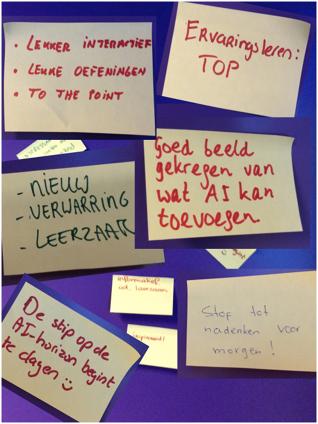 • LEKKER INTERACTIEF
• LEUKE OEFENINGEN
• TO THE POINT
ERVARINGSLEREN:
TOP
Goed beeld
gekregen van
wat AI kan
toevoegen
- NIEUW
- VERWARRING
- LEERZAAM
informatief
De stip op de
AI-horizon begint
te dagen ☺
Stof tot
nadenken voor
morgen !